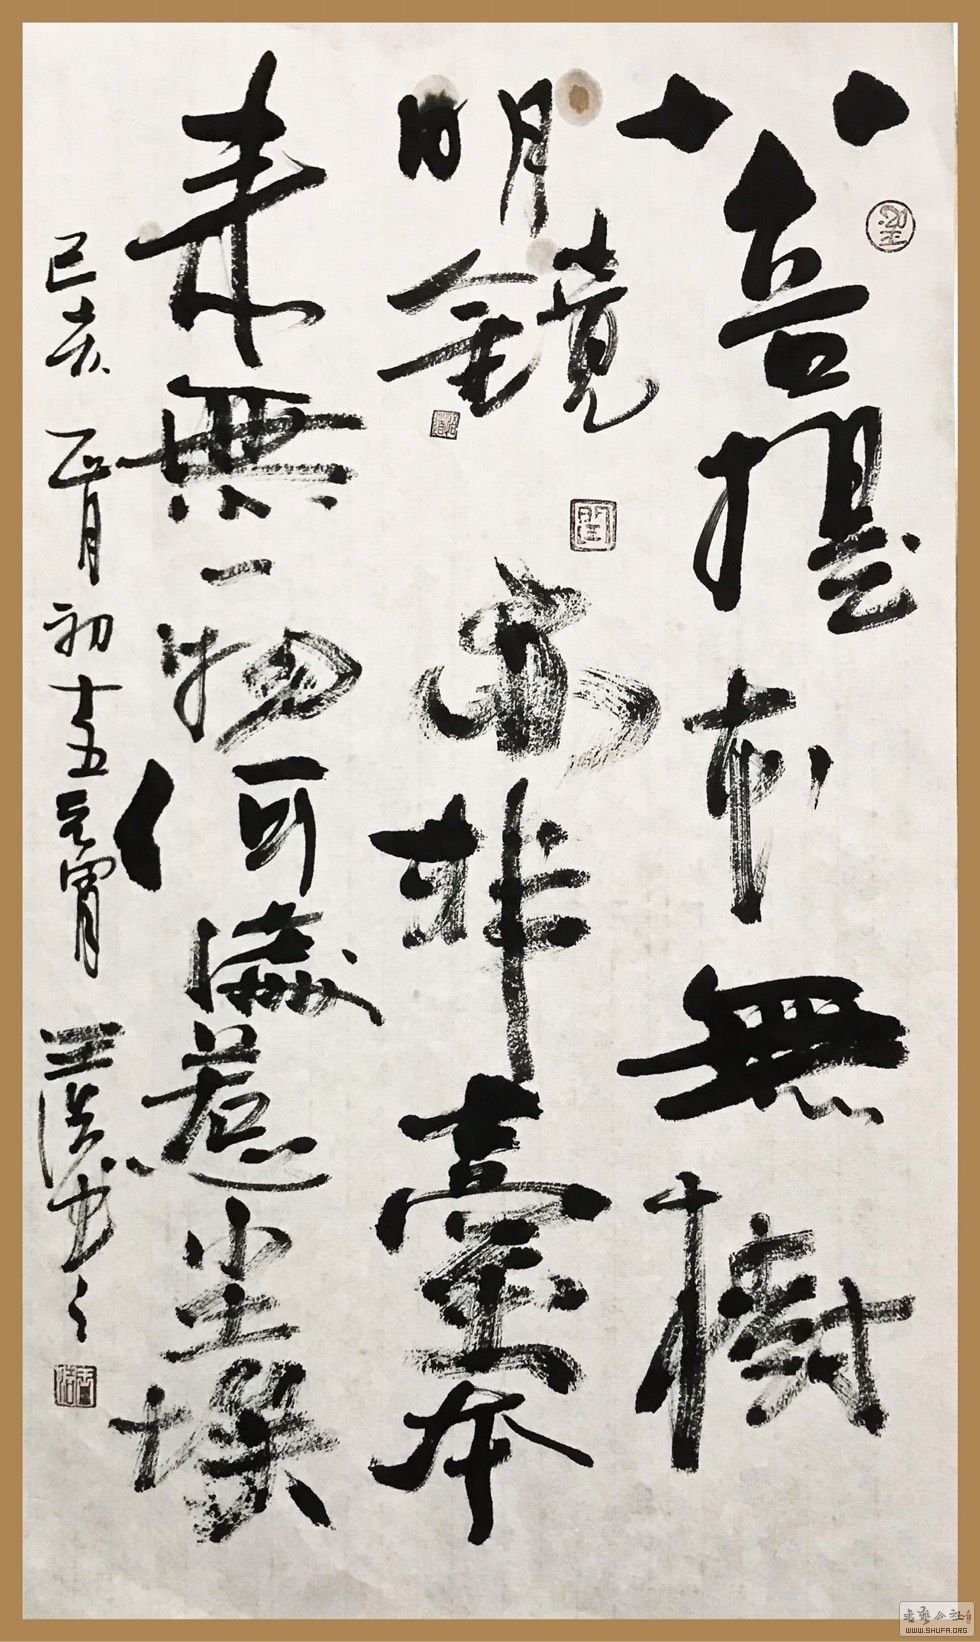 菩提本無樹
明鏡亦非臺本
来無一物何處惹塵埃
己亥正月初十五元宵
書藝公社
WWW.SHUFA.ORG